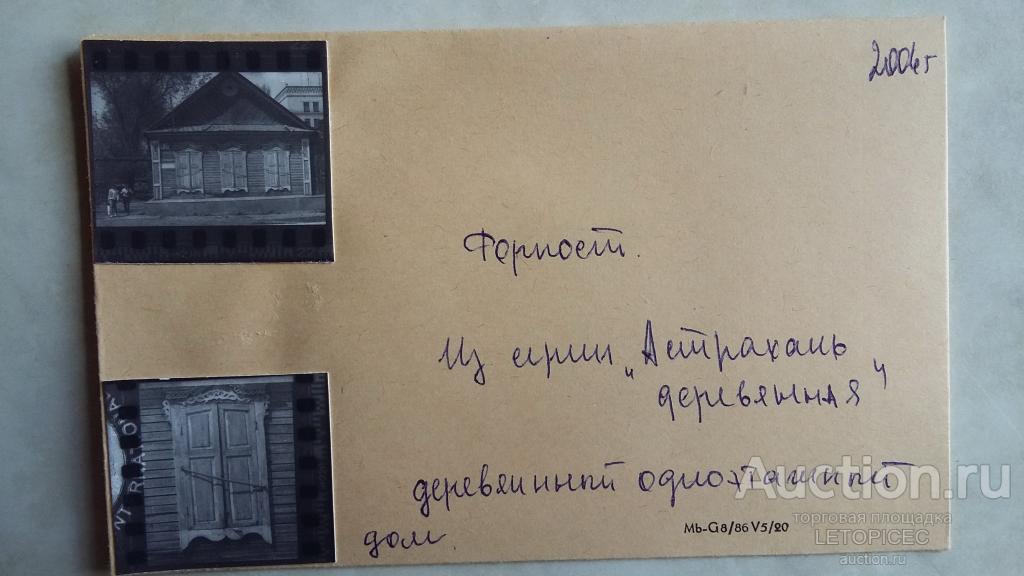 2004г
Форпост.
Из серии „Астрахань
деревянная"
деревянный одноэтажный
дом.
Mb-G 8/86 V 5/20
Auction.ru
торговая площадка
LETOPICEC
auction.ru